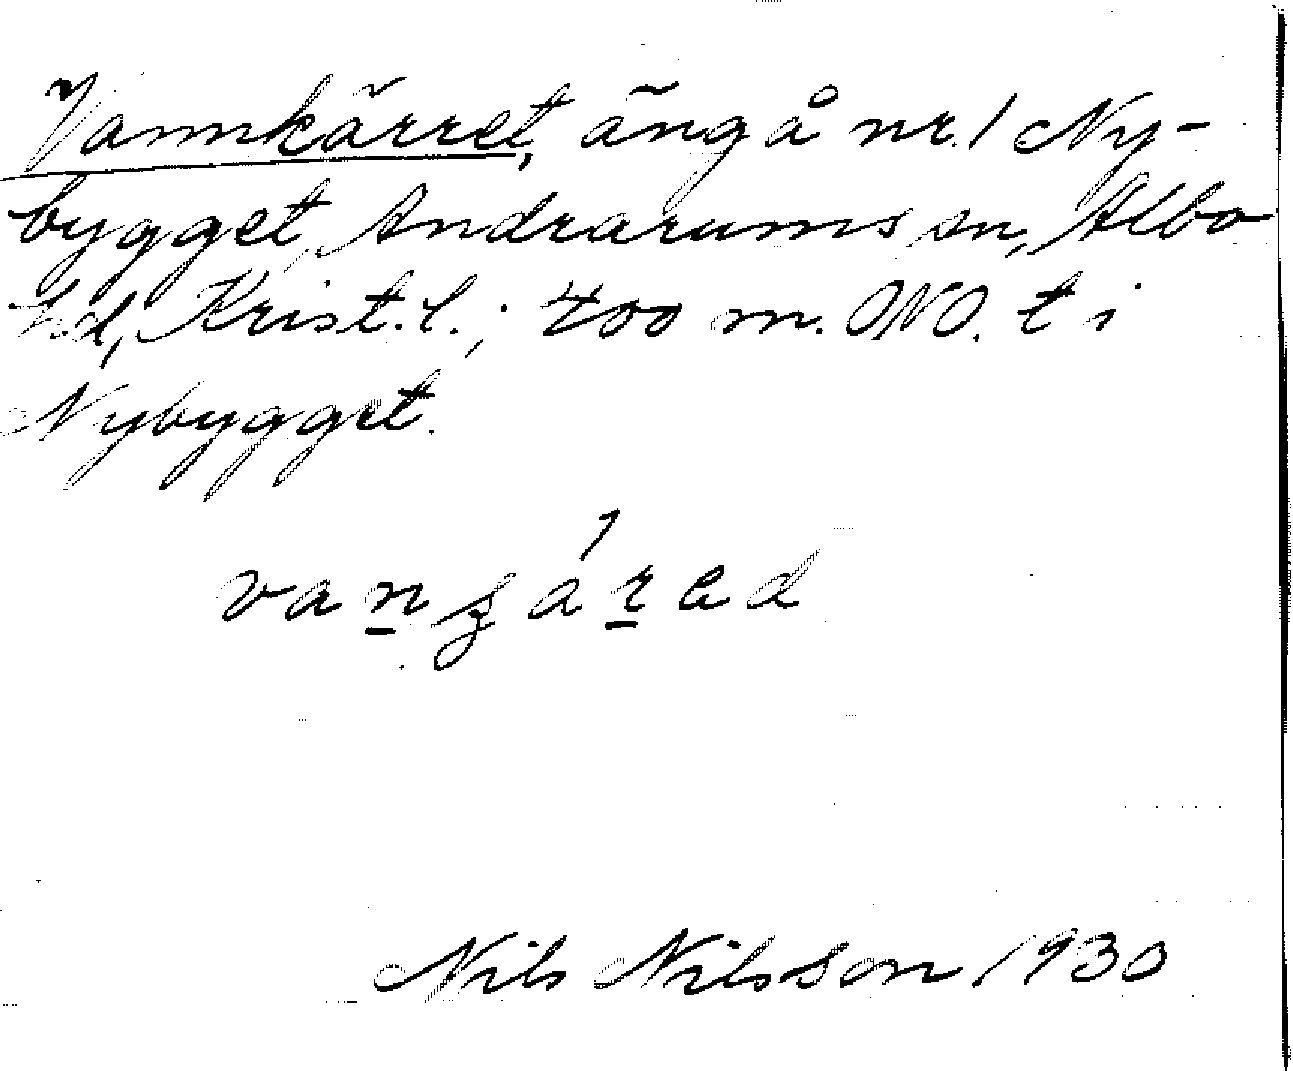 Vannkärret, äng å nr. 1 Ny-
bygget, Andrarums sn, Albo
hd, Krist. l.; 400 m. ONO. t i
Nybygget.
Nils Nilsson 1930